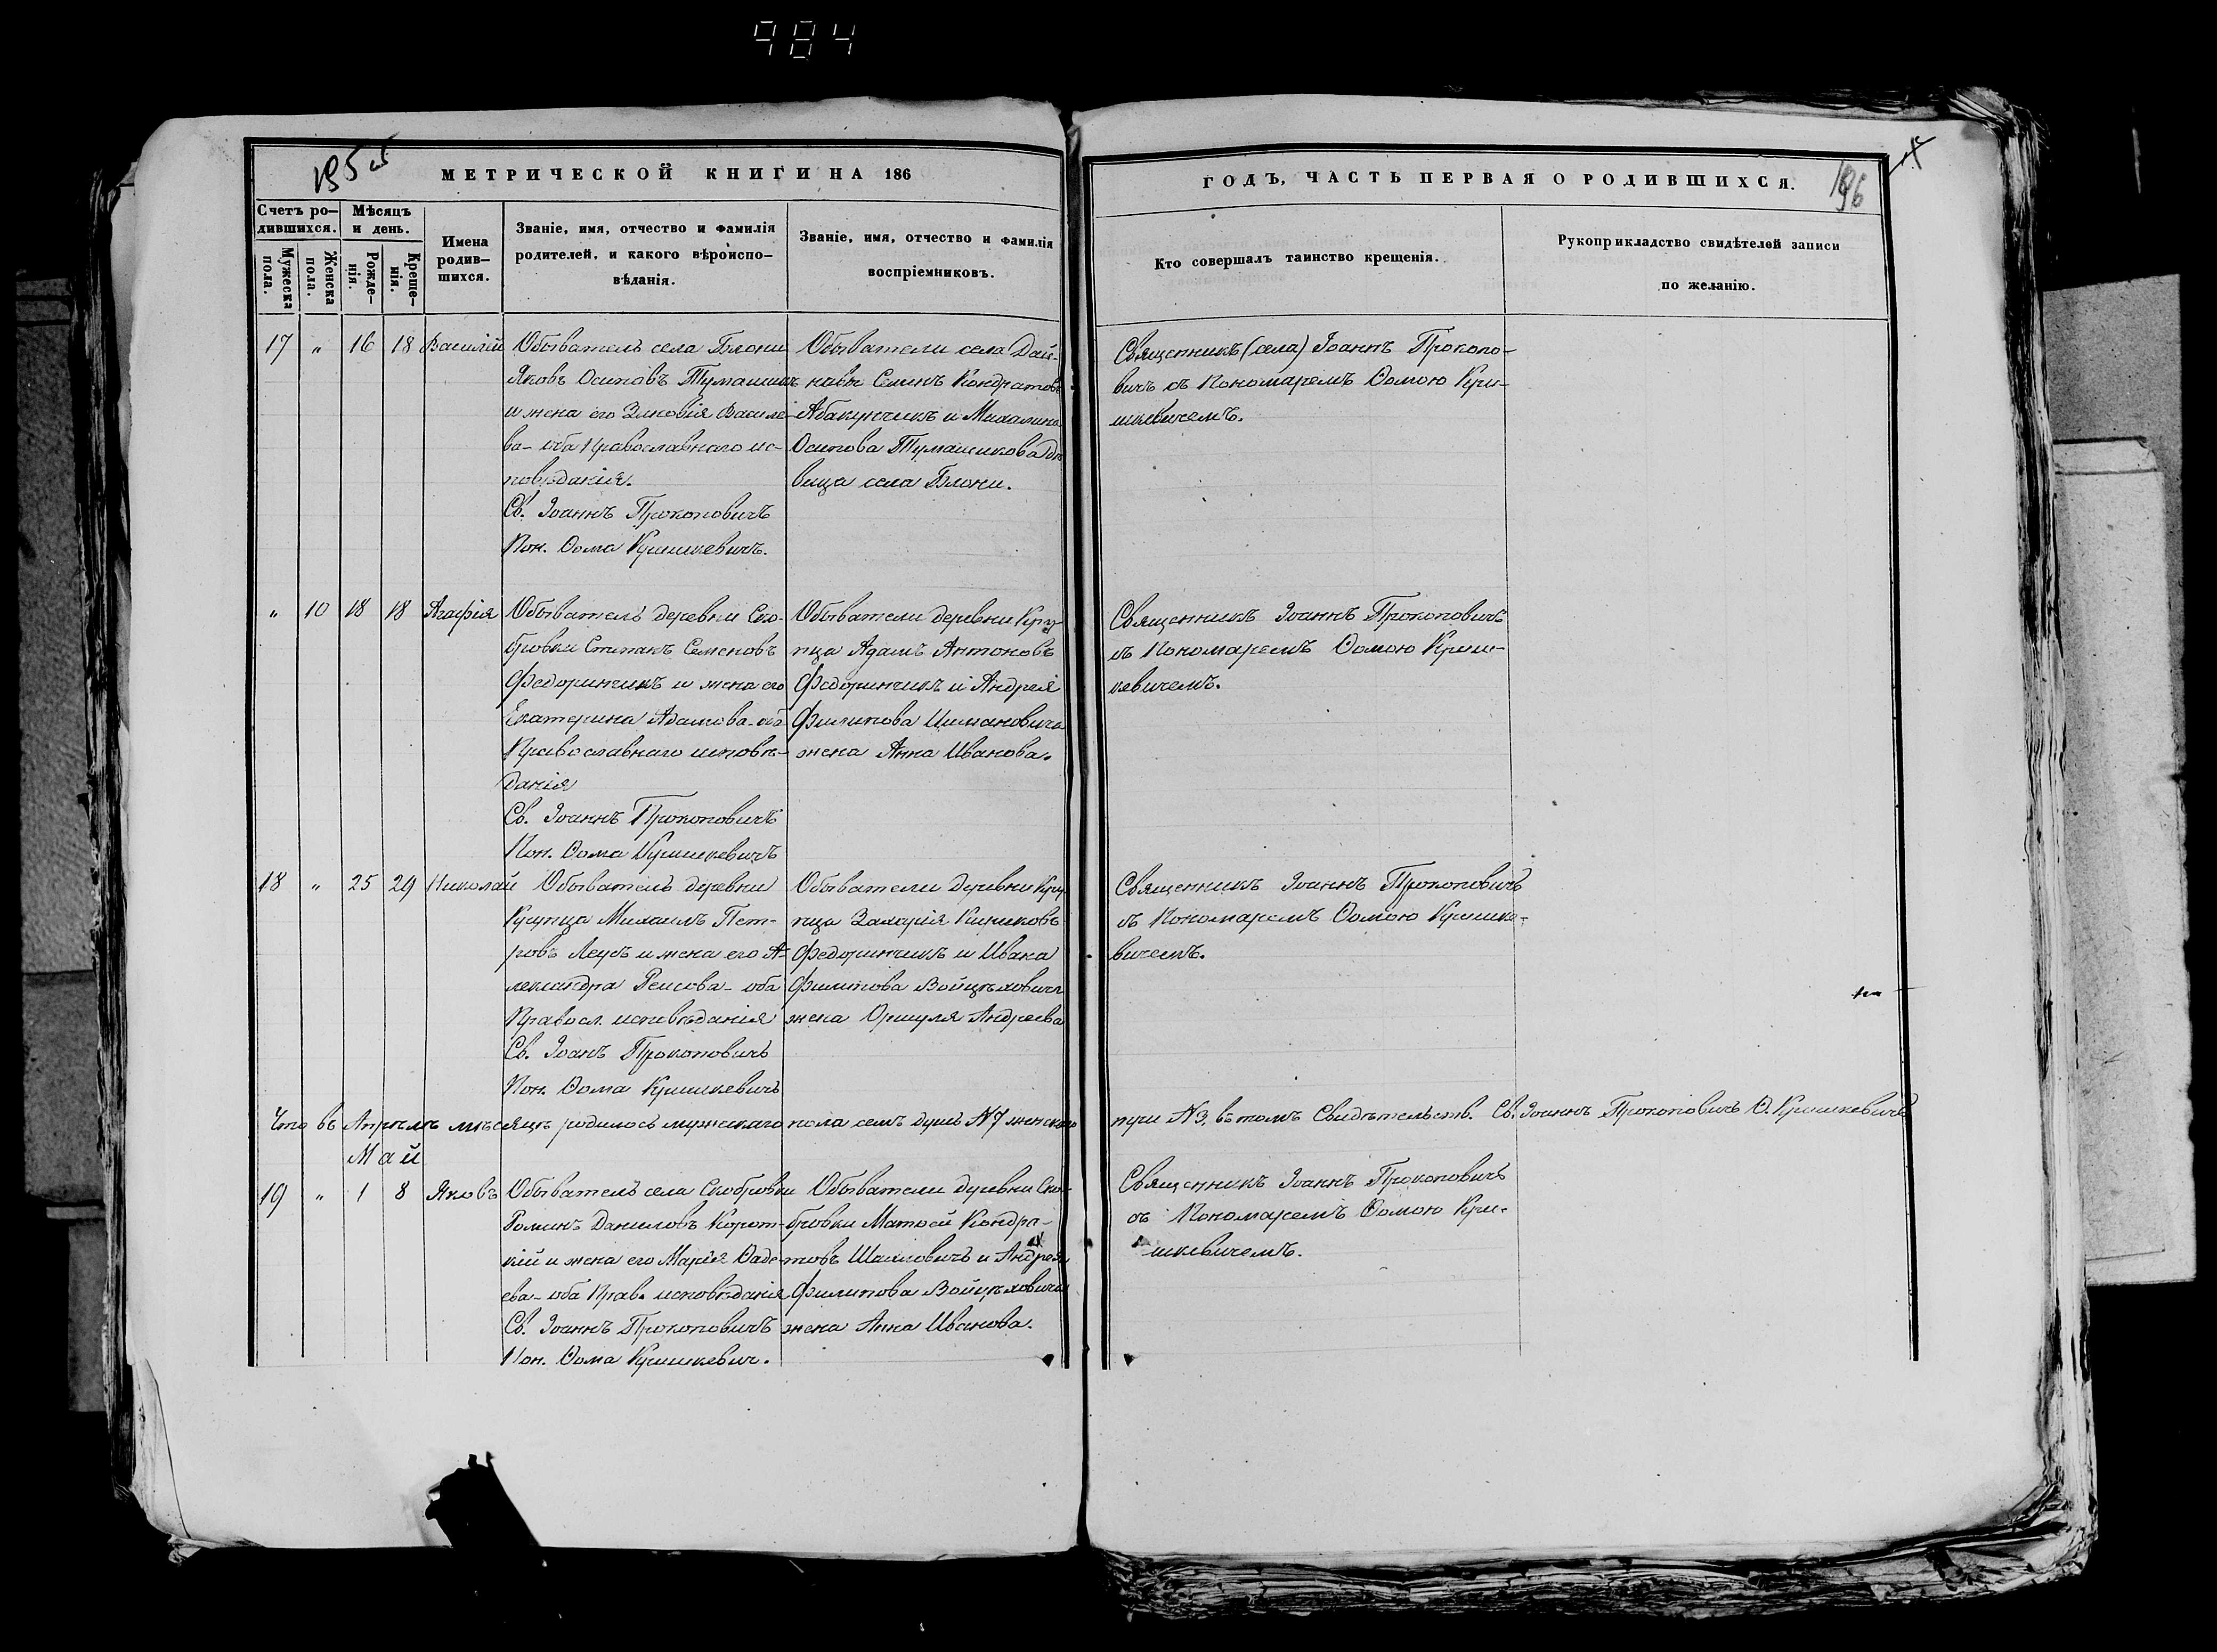 984
МЕТРИЧЕСКОЙ КНИГИ НА 186
ГОДЪ, ЧАСТЬ ПЕРВАЯ О РОДИВШИХСЯ.
196
Счетъ ро-
дившихся.
Мужеска
пола.
Женска
пола.
Мѣсяцъ
и день.
Рожде-
нія.
Креще-
нія.
Имена
родив-
шихся.
Званіе, имя, отчество и фамилія
родителей, и какого вѣроиспо-
вѣданія.
Званіе, имя, отчество и фамилія
воспріемниковъ.
Кто совершалъ таинство крещенія.
Рукоприкладство свидѣтелей записи
по желанію.
17 " 16 18 Василій
Обыватель села Блони
Яковъ Осиповъ Тумашикъ
и жена его Зиновія Василе-
ва - оба Православнаго ис-
повѣданія.
Св. Іоаннъ Прокоповичъ
Пон. Ѳома Кришкевичъ.
Обыватели села Дай-
новы Семенъ Кондратовъ
Абакунчикъ и Михалина
Осипова Тумашикова дѣ
вица села Блони.
Священникъ (села) Іоаннъ Прокопо-
вичъ съ Пономаремъ Ѳомою Кри-
шкевичемъ.
" 10 18 18 Агафія
Обыватель деревни Ско-
бровки Степанъ Семеновъ
Федоринчикъ и жена его
Екатерина Адамова - оба
Православнаго исповѣ-
данія
Св. Іоаннъ Прокоповичъ
Пон. Ѳома Кришкевичъ
Обыватели деревни Кру-
пца Адамъ Антоновъ
Федоринчикъ и Андрея
Филипова
жена Анна Иванова.
Священникъ Іоаннъ Прокоповичъ
съ Пономаремъ Ѳомою Криш-
кевичемъ.
18 " 25 29 Николай
Обыватель деревни
Крупца Михаилъ Пет-
ровъ Леусъ и жена его А-
лександра - оба
Правосл. исповѣданія
Св. Іоанъ Прокоповичъ
Пон. Ѳома Кришкевичъ
Обыватели деревни Кру
пца Захарія Кириковъ
Федоринчикъ и Ивана
Филипова Войцѣховича
жена Оршуля Андреева
Священникъ Іоаннъ Прокоповичъ
съ Пономаремъ Ѳомою Кришке-
вичемъ.
Что въ Апрѣлѣ мѣсяцѣ родилось мужскаго пола семъ душъ N 7 женскаго
три N 3, въ томъ Свидѣтельств. Св. Іоаннъ Прокоповичъ Ѳ. Кришкевичъ
Май
19 " 1 8 Яковъ
Обыватель села Скобровки
Романъ Даниловъ Корот-
кій и жена его Марія Ѳаде-
ева - оба Прав. исповѣданія
Св. Іоаннъ Прокоповичъ
Пон. Ѳома Кришкевич.
Обыватели деревни Ско-
бровки Матѳей Кондра-
товъ и Андрея
Филипова Войцѣховича
жена Анна Иванова.
Священникъ Іоаннъ Прокоповичъ
съ Пономаремъ Ѳомою Кри-
шкевичемъ.